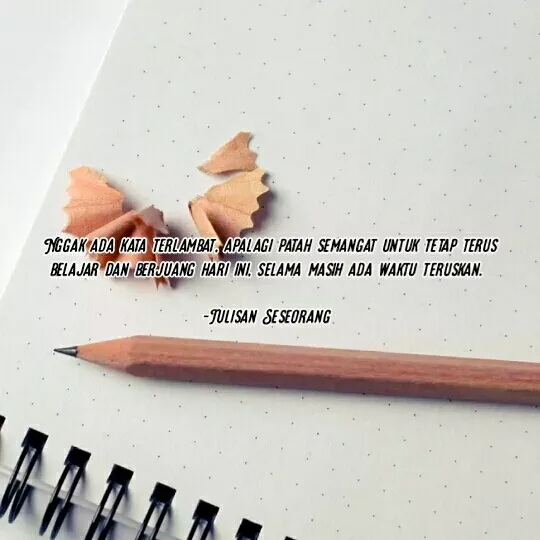 Nggak ada kata terlambat, apalagi patah semangat untuk tetap terus
belajar dan berjuang hari ini, selama masih ada waktu teruskan.
-Tulisan Seseorang